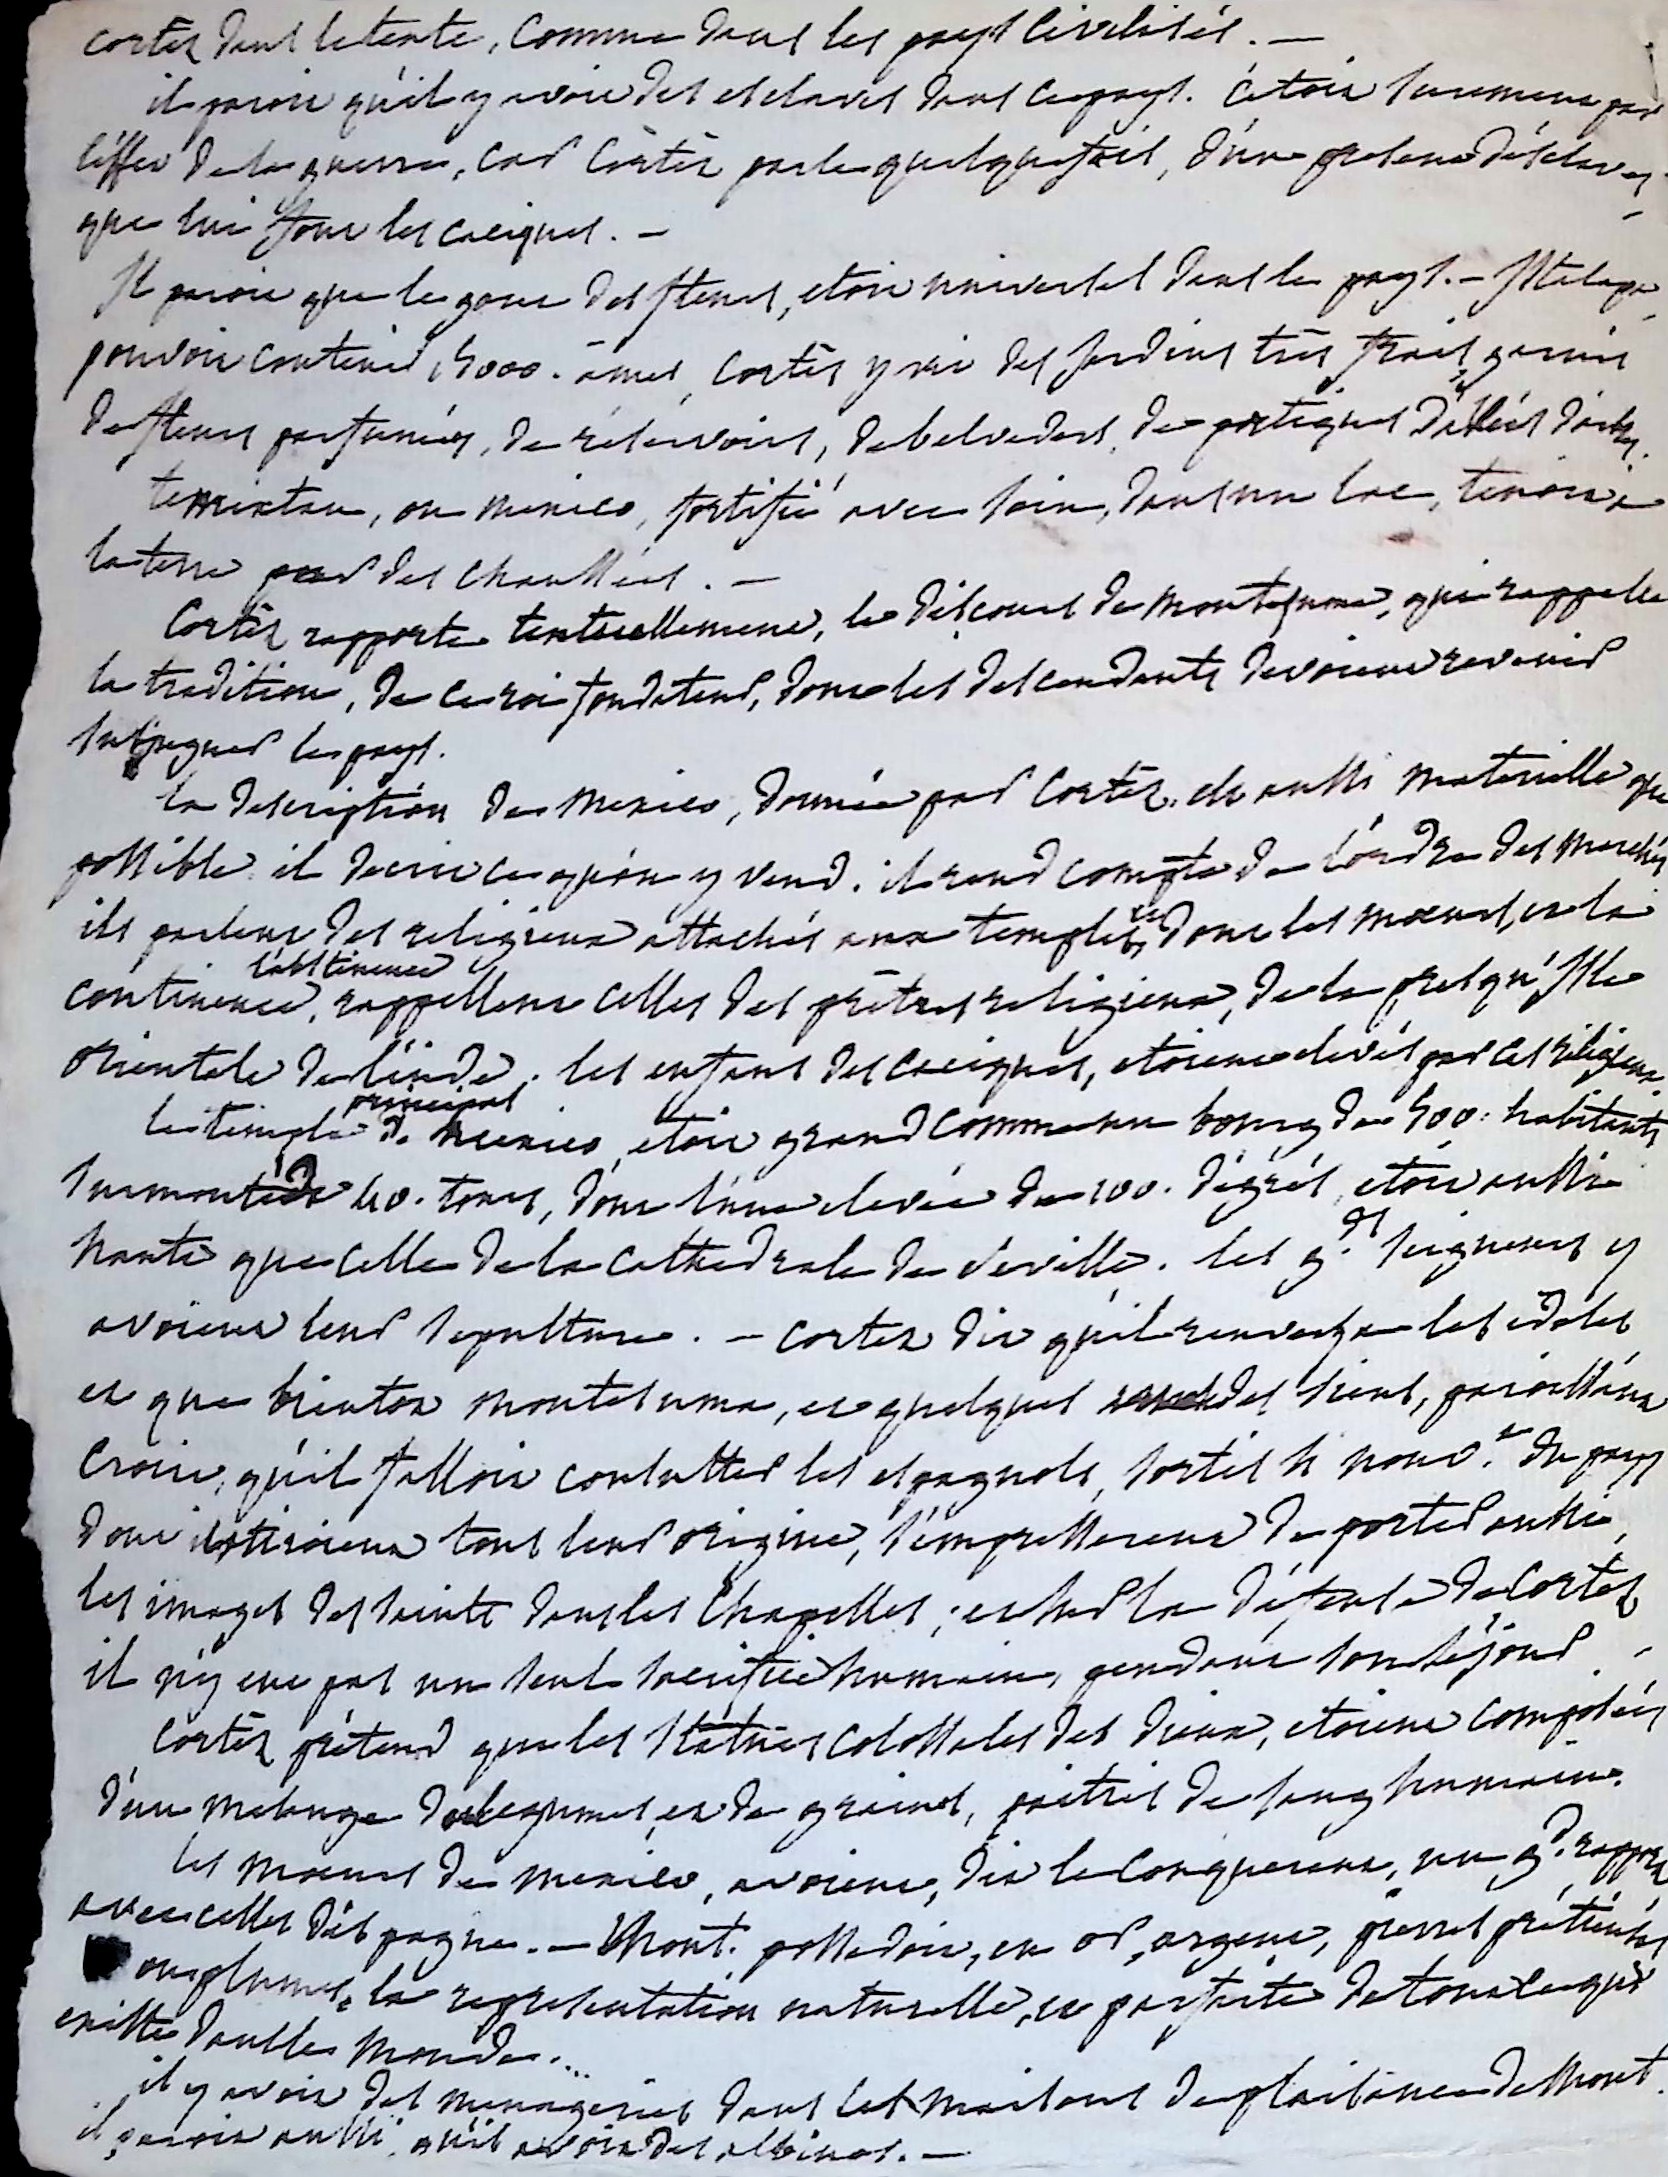 cortès dans le texte, comme dans les pays civilisés. —
il paroit qu'il y avoit des esclaves dans ce pays. c'etoit surement par
l'effet de la guerre, car Cortès parle quelquefois, d'un present d'esclaves
que lui font les caciques. —
Il paroit que le gout des fleurs, etoit universel dans le pays. — Istalapa
pouvoit contenir 15000. ames, cortès y vit des jardins très frais, garnis
de fleurs parfumées, de réservoirs, de belveders, de portiques d'allées d'arbres.
temixtan, ou mexico, fortifié avec soin, dans un lac, tenoit à
la terre par des chaussées. —
Cortès rapporte textuellement, le discours de montesuma, qui rappelle
la tradition, de ce roi fondateur, dont les descendants devoient revenir
subjuguer le pays.
la description de mexico, donnée par Cortès, est aussi materielle que
possible. il decrit ce qu'on y vend. il rend compte de l'ordre des marchés
ils parlent des religieux attachés aux temples, dont les mœurs, et la
continence, l'abstinence rappellent celles des prêtres religieux, de la presqu'Isle
orientale de l'inde. les enfans des caciques, etoient elevés par ces religieux.
le temple principal de mexico, etoit grand comme un bourg de 500. habitants
surmonté de 40. tours, dont l'une elevée de 100. dégrés, etoit aussi
haute que celle de la cathedrale de seville. les gds. seigneurs y
avoient leur sepulture. — cortes dit qu'il renversa les idoles
et que bientot montesuma, et quelques des siens, paroissant
croire, qu'il falloit consulter les espagnols, sortis si nouv.t du pays
dont ils tiroient tous leur origine, s'empresserent de porter aussi,
les images des saints dans les chapelles; et sur la défense de Cortès
il n'y eut pas un seul sacrifice humain, pendant son séjour. —
Cortès prétend que les statues colossales des dieux, etoient composées
d'un mélange de legumes, et de graines, paitris de sang humain.
les mœurs de mexico, avoient, dit le conquerant, un gd. rapport
avec celles d'espagne. — Mont. possedoit, en or, argent, pierres prétieuses
ou plumes, la representation naturelle, et parfaite de tout ce qui
existe dans le monde...
il y avoit des menageries dans les maisons de plaisance de Mont.
il paroit aussi, qu'il avoit des albinos. —